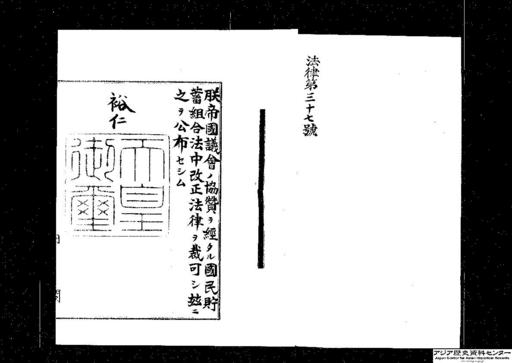 法律第三十七號
朕帝國議會ノ協贊ヲ經タル國民貯
蓄組合法中改正法律ヲ裁可シ玆ニ
之ヲ公布セシム
裕仁
天皇
御璽
アジア歴史資料センター
Japan Center for Asian Historical Records